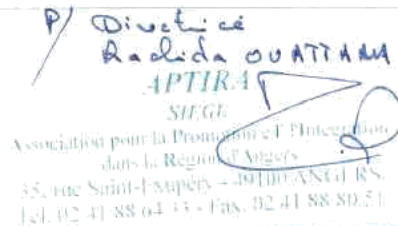 P/ Directrice
Rachida OUATTARA
APTIRA
SIEGE
Association pour la Promotion et l'Intégration
dans la Région d'Angers
35, rue Saint-Exupéry - 49100 ANGERS
Tél. 02 41 88 64 33 - Fax. 02 41 88 80 51